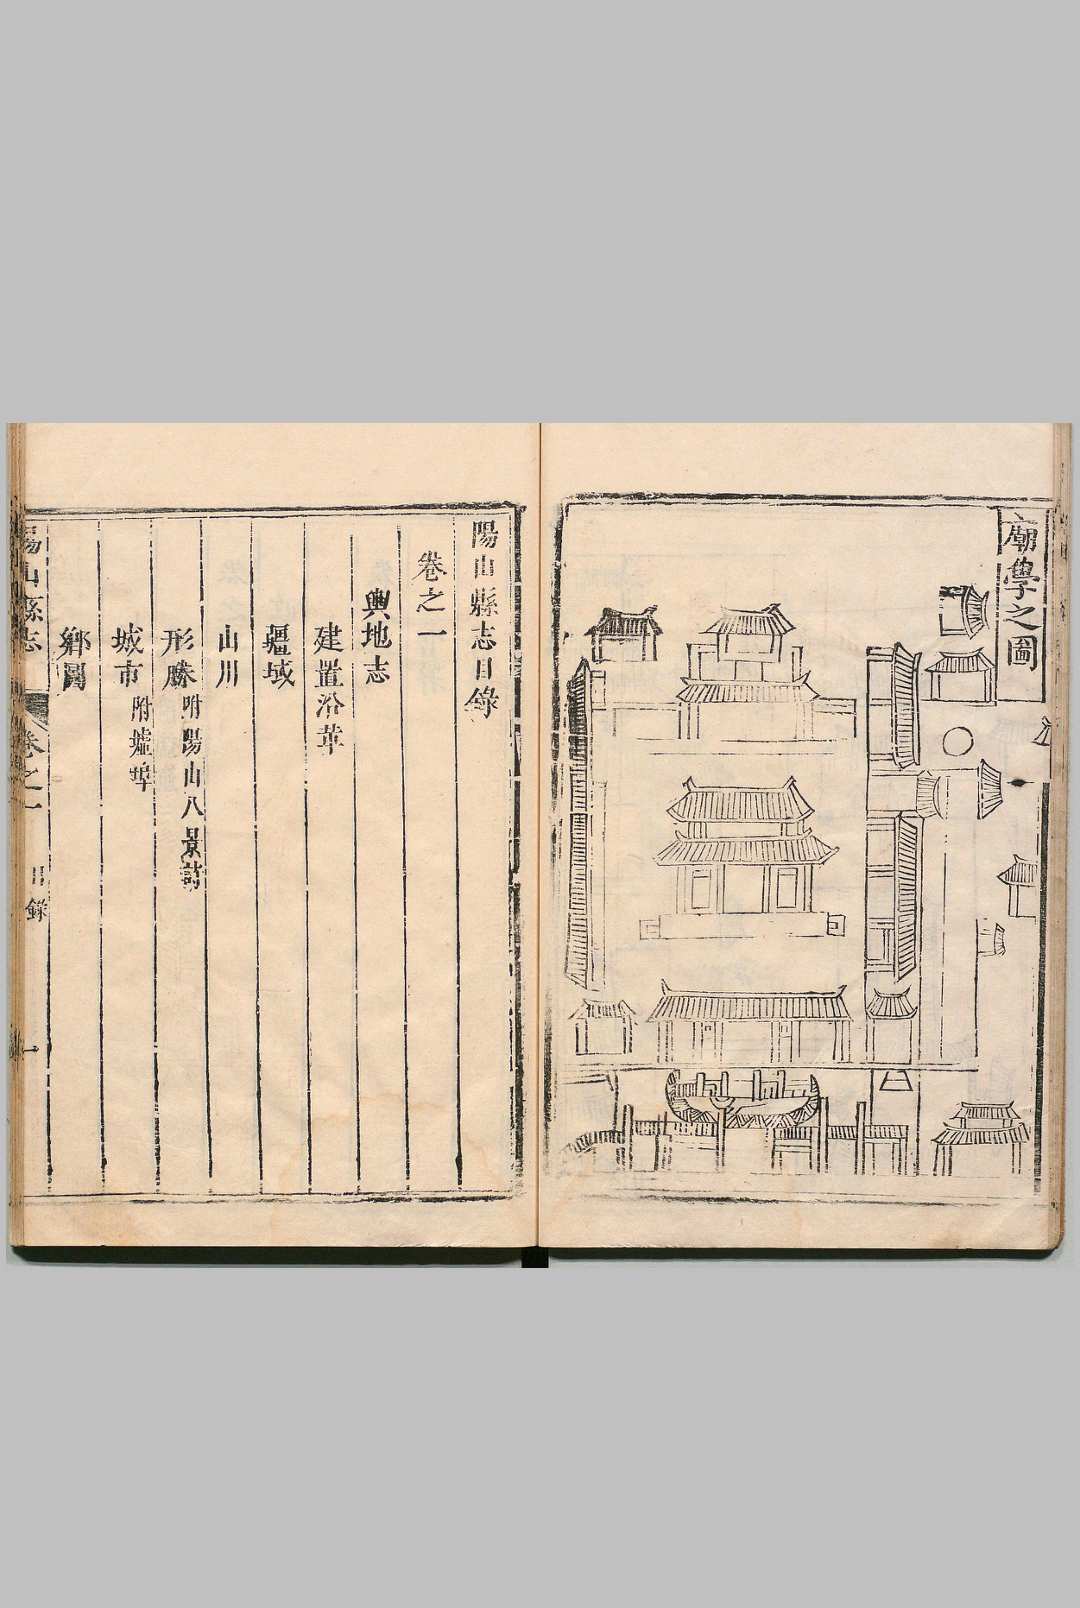 廟學之圖
陽山縣志目錄
卷之一
輿地志
建置沿革
疆域
山川
形勝 附陽山八景詩
城市 附墟埠
鄉圖
陽山縣志 卷之一 目錄 一